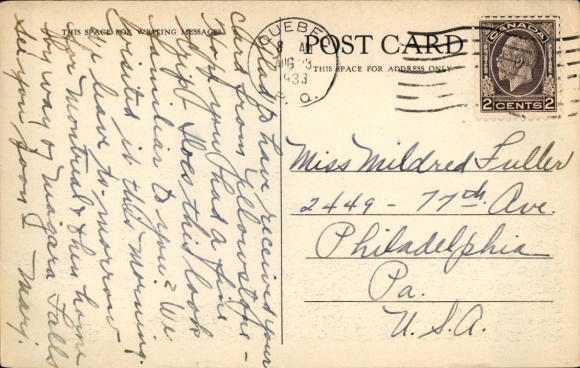 THIS SPACE FOR WRITING MESSAGES
Gladys have received your
card from Yellowstone -
Hope you had a fine
trip. Does this look
familiar to you? We
visited it this morning.
We leave to-morrow
for Montreal & then home
by way of Niagara Falls
See you soon - Marj.
QUEBEC
8 A
AUG 23
1933
P. Q.
POST CARD
THIS SPACE FOR ADDRESS ONLY
CANADA
2 CENTS 2
Miss Mildred Fuller
2449 - 77th Ave.
Philadelphia
Pa.
U.S.A.